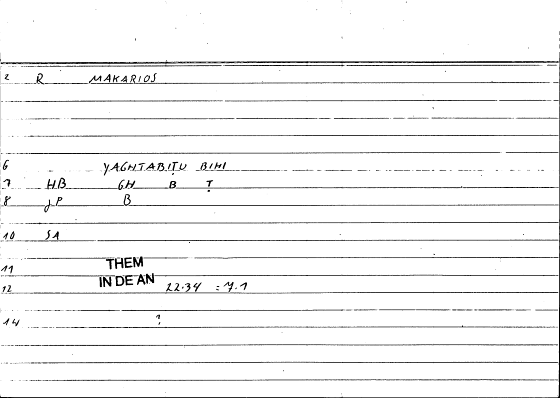 2 R MAKARIOS
6 YAGHTABIṬU BIHI
7 HB GH B Ṭ
8 JP B
10 SA
11 THEM
12 IN DE AN 22.34 : 7.1
14 ?